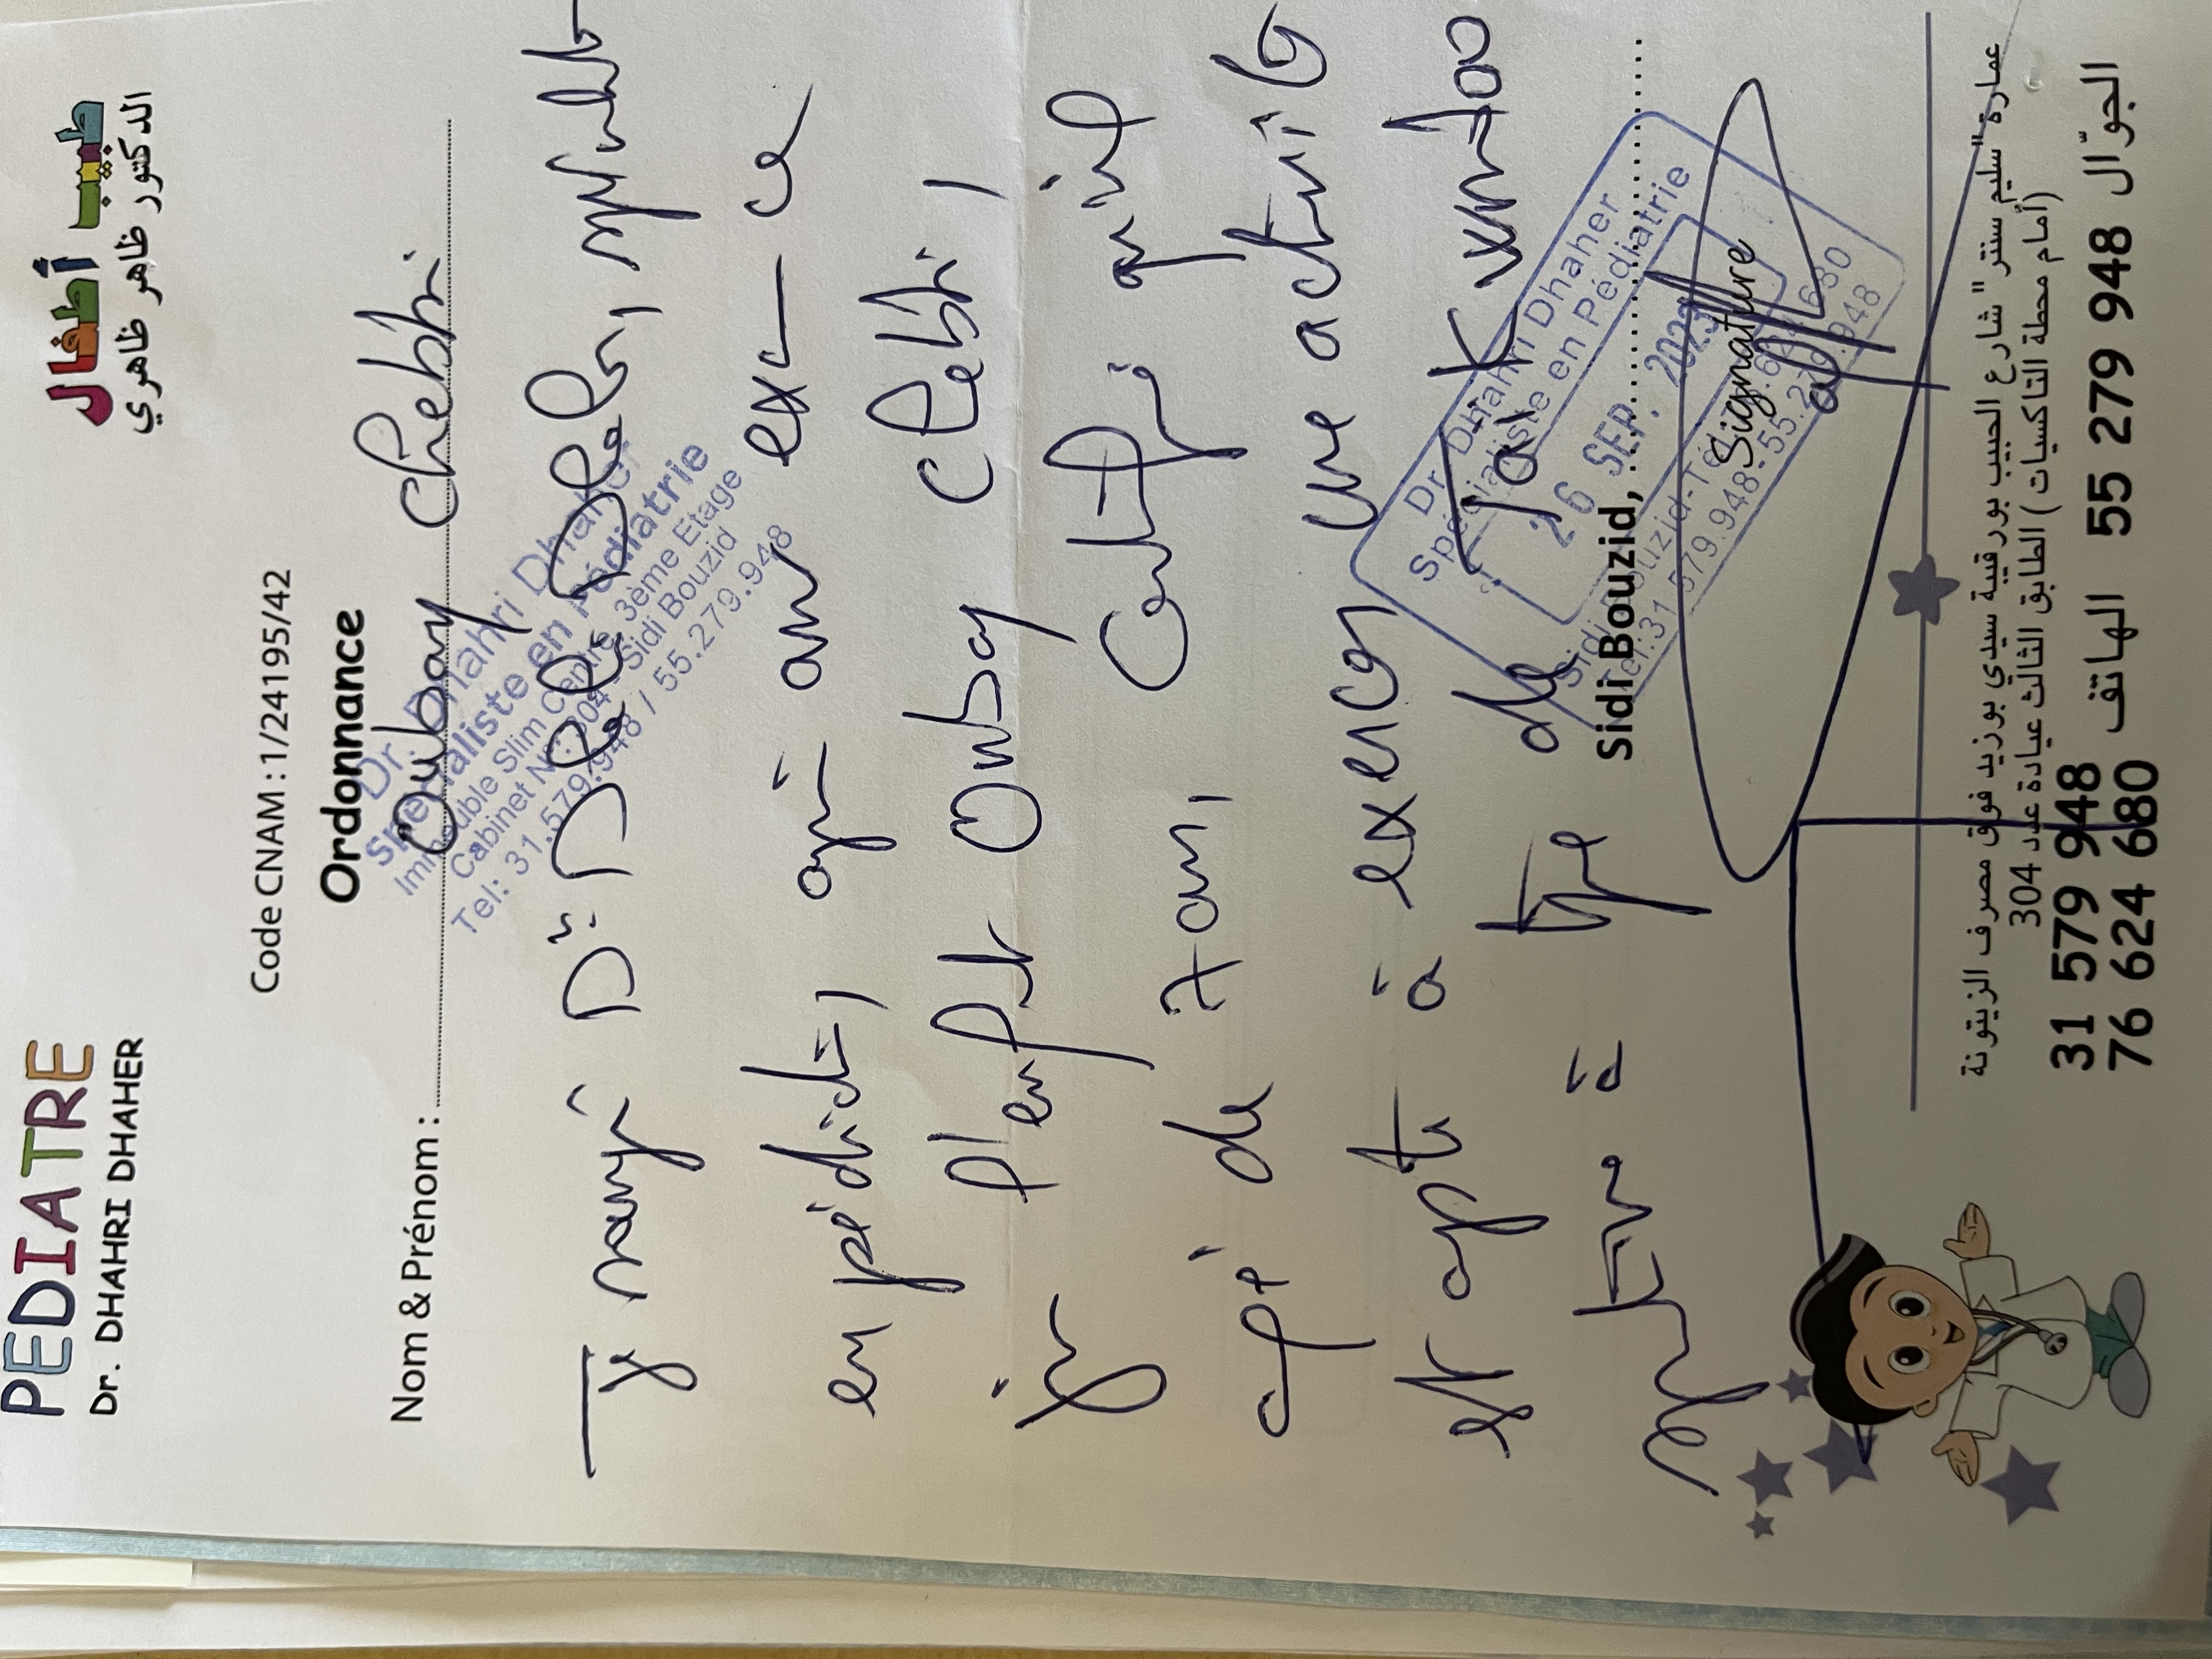 PEDIATRE
Dr. DHAHRI DHAHER
طبيب أطفال
الدكتور ظاهر ظاهري
Code CNAM : 1/24195/42
Ordonnance
Nom & Prénom : Oubay chebbi
Dr. Dhahri Dhaher
Spécialiste en Pédiatrie
Immeuble Slim Centre 3ème Etage
Cabinet N°: 304 - Sidi Bouzid
Tel: 31.579.948 / 55.279.948
Je Dr: Dhahri Dhaher, spécialiste
en pédiatrie, ex ce
jour l'enfant Oubay chebbi,
âgé de 7 ans, Certifie qu'il
est apte à exercer une activité
sportive à type de
Dr. Dhahri Dhaher
Spécialiste en Pédiatrie
26 SEP. 2023
Sidi Bouzid-Tél:
Tel:31.579.948-55.279.948
Sidi Bouzid, ..........
Signature
عمارة "سليم سنتر" شارع الحبيب بورقيبة سيدي بوزيد فوق مصرف الزيتونة
(أمام محطة التاكسيات) الطابق الثالث عيادة عدد 304
31 579 948
76 624 680 الهاتف 55 279 948 الجوّال